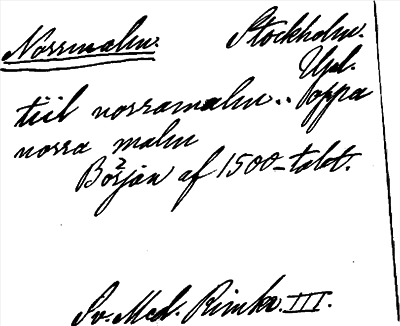 Norrmalm. Stockholm.
Upl.
tiil norramalm.. Uppa
norra malm
Början af 1500-talet.
Sv. Med. Rimkr. III.